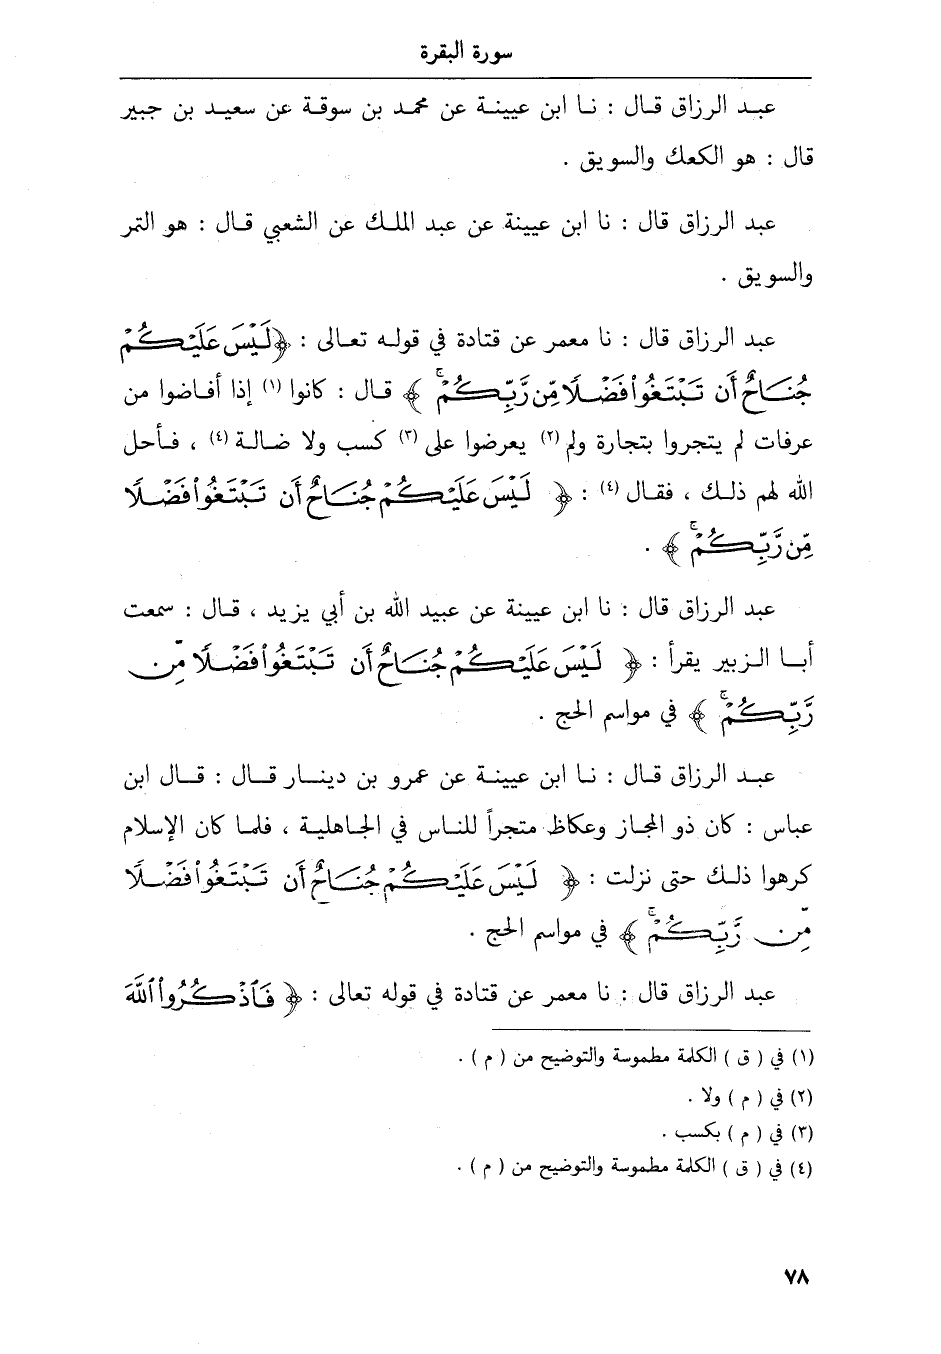 سورة البقرة
عبد الرزاق قال : نا ابن عيينة عن محمد بن سوقة عن سعيد بن جبير
قال : هو الكعك والسويق .
عبد الرزاق قال : نا ابن عيينة عن عبد الملك عن الشعبي قال : هو التمر
والسويق .
عبد الرزاق قال : نا معمر عن قتادة في قوله تعالى : ﴿لَيْسَ عَلَيْكُمْ
جُنَاحٌ أَن تَبْتَغُوا۟ فَضْلًا مِّن رَّبِّكُمْ ۚ﴾ قال : كانوا (١) إذا أفاضوا من
عرفات لم يتجروا بتجارة ولم (٢) يعرضوا على (٣) كسب ولا ضالة (٤) ، فأحل
الله لهم ذلك ، فقال (٤) : ﴿ لَيْسَ عَلَيْكُمْ جُنَاحٌ أَن تَبْتَغُوا۟ فَضْلًا
مِّن رَّبِّكُمْ ۚ﴾ .
عبد الرزاق قال : نا ابن عيينة عن عبيد الله بن أبي يزيد ، قال : سمعت
أبا الزبير يقرأ : ﴿ لَيْسَ عَلَيْكُمْ جُنَاحٌ أَن تَبْتَغُوا۟ فَضْلًا مِّن
رَّبِّكُمْ ۚ﴾ في مواسم الحج .
عبد الرزاق قال : نا ابن عيينة عن عمرو بن دينار قال : قال ابن
عباس : كان ذو المجاز وعكاظ متجراً للناس في الجاهلية ، فلما كان الإسلام
كرهوا ذلك حتى نزلت : ﴿ لَيْسَ عَلَيْكُمْ جُنَاحٌ أَن تَبْتَغُوا۟ فَضْلًا
مِّن رَّبِّكُمْ ۚ﴾ في مواسم الحج .
عبد الرزاق قال : نا معمر عن قتادة في قوله تعالى : ﴿ فَٱذْكُرُوا۟ ٱللَّهَ
(١) في ( ق ) الكلمة مطموسة والتوضيح من ( م ) .
(٢) في ( م ) ولا .
(٣) في ( م ) بكسب .
(٤) في ( ق ) الكلمة مطموسة والتوضيح من ( م ) .
٧٨